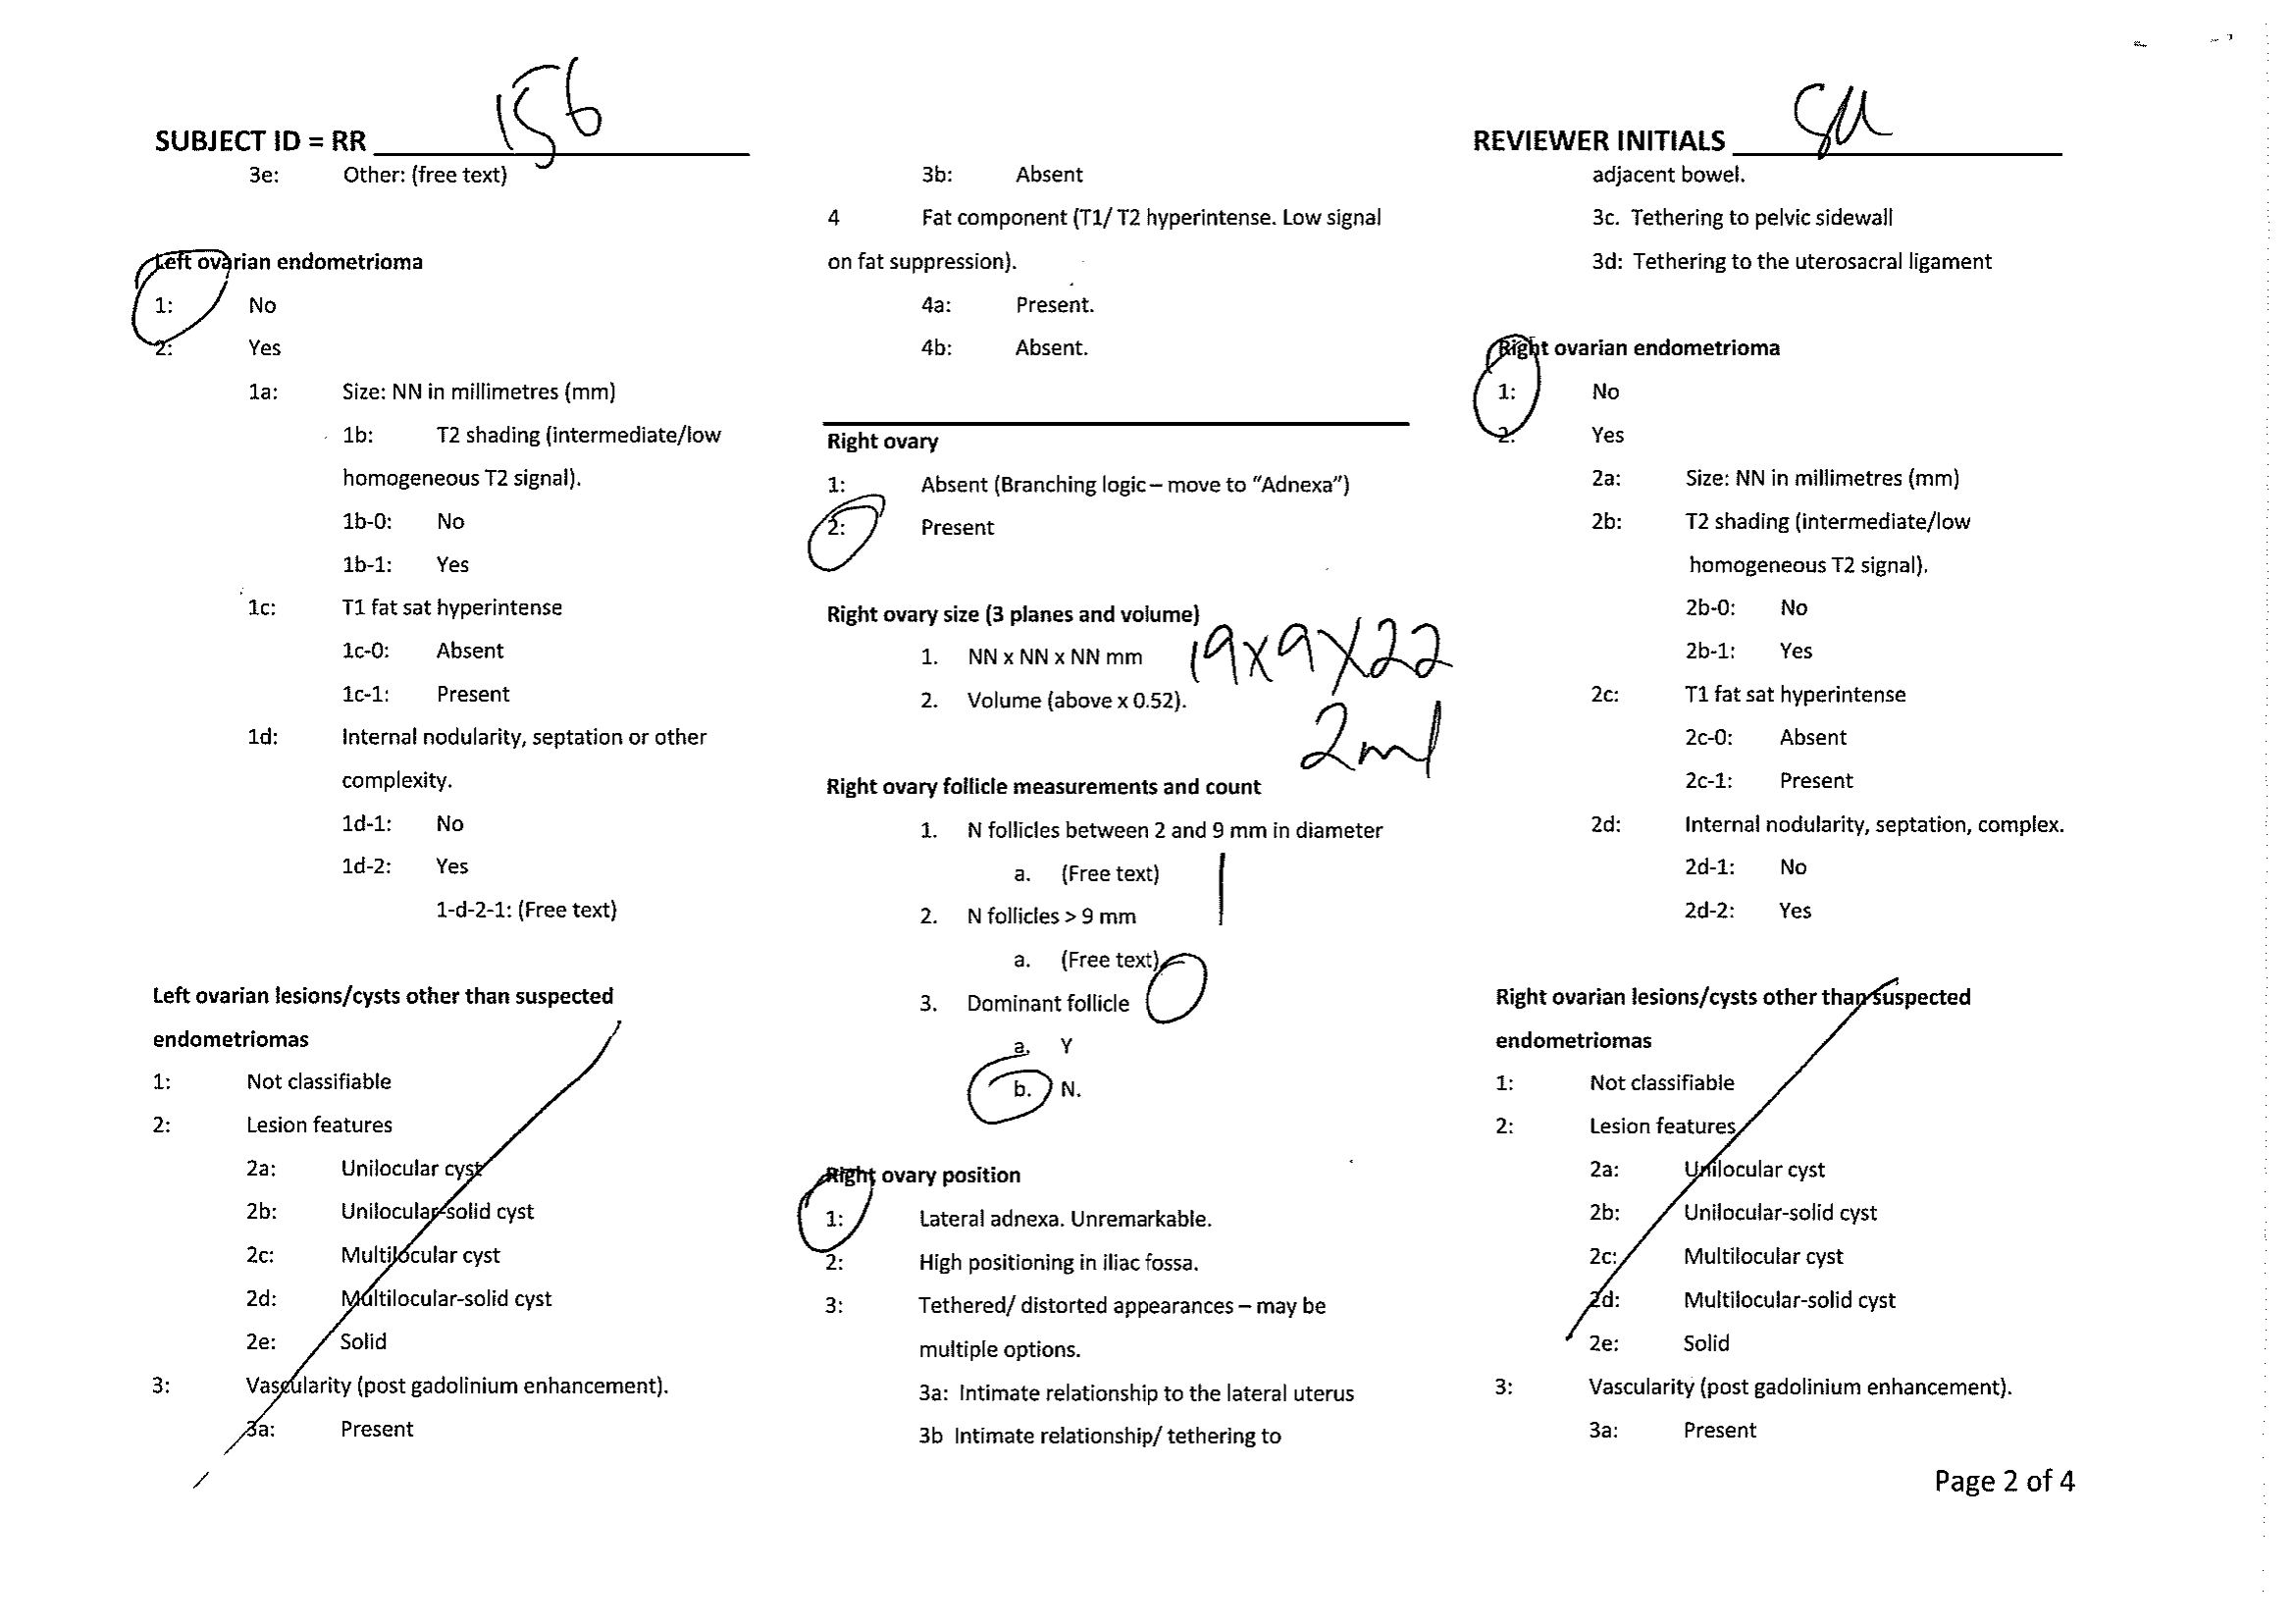 SUBJECT ID = RR 156
REVIEWER INITIALS SA
3e: Other: (free text)
Left ovarian endometrioma
1: No
2: Yes
1a: Size: NN in millimetres (mm)
1b: T2 shading (intermediate/low
homogeneous T2 signal).
1b-0: No
1b-1: Yes
1c: T1 fat sat hyperintense
1c-0: Absent
1c-1: Present
1d: Internal nodularity, septation or other
complexity.
1d-1: No
1d-2: Yes
1-d-2-1: (Free text)
Left ovarian lesions/cysts other than suspected
endometriomas
1: Not classifiable
2: Lesion features
2a: Unilocular cyst
2b: Unilocular-solid cyst
2c: Multilocular cyst
2d: Multilocular-solid cyst
2e: Solid
3: Vascularity (post gadolinium enhancement).
3a: Present
3b: Absent
4 Fat component (T1/ T2 hyperintense. Low signal
on fat suppression).
4a: Present.
4b: Absent.
Right ovary
1: Absent (Branching logic – move to “Adnexa”)
2: Present
Right ovary size (3 planes and volume)
1. NN x NN x NN mm 19x9x22
2. Volume (above x 0.52).
2ml
Right ovary follicle measurements and count
1. N follicles between 2 and 9 mm in diameter
a. (Free text) 1
2. N follicles > 9 mm
a. (Free text) 0
3. Dominant follicle
a. Y
b. N.
Right ovary position
1: Lateral adnexa. Unremarkable.
2: High positioning in iliac fossa.
3: Tethered/ distorted appearances – may be
multiple options.
3a: Intimate relationship to the lateral uterus
3b Intimate relationship/ tethering to
adjacent bowel.
3c. Tethering to pelvic sidewall
3d: Tethering to the uterosacral ligament
Right ovarian endometrioma
1: No
2: Yes
2a: Size: NN in millimetres (mm)
2b: T2 shading (intermediate/low
homogeneous T2 signal).
2b-0: No
2b-1: Yes
2c: T1 fat sat hyperintense
2c-0: Absent
2c-1: Present
2d: Internal nodularity, septation, complex.
2d-1: No
2d-2: Yes
Right ovarian lesions/cysts other than suspected
endometriomas
1: Not classifiable
2: Lesion features
2a: Unilocular cyst
2b: Unilocular-solid cyst
2c: Multilocular cyst
2d: Multilocular-solid cyst
2e: Solid
3: Vascularity (post gadolinium enhancement).
3a: Present
Page 2 of 4